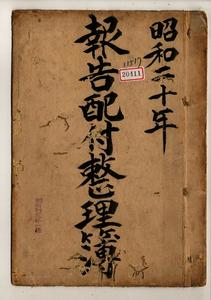 昭和二十年
報告配付整理簿
20411